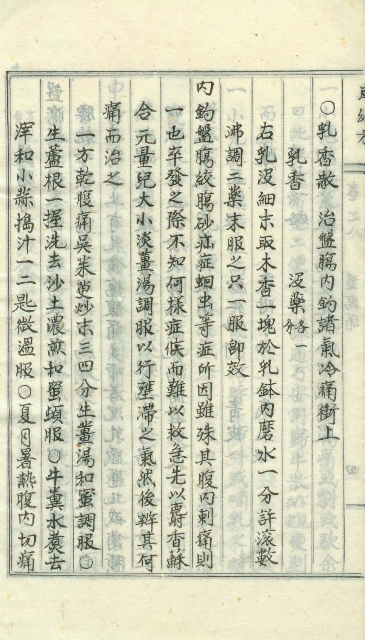 ○乳香散 治盤腸內釣諸氣冷痛衝上
乳香 沒藥各一分
右乳沒細末取木香一塊於乳鉢內磨水一分許滾數
沸調二藥末服之只一服卽效
內釣盤腸絞腸砂疝症蛔虫等症所因雖殊其腹內刺痛則
一也卒發之際不知何樣症候而難以救急先以麝香蘇
合元量兒大小淡薑湯調服以行壅滯之氣然後辨其何
痛而治之
一方乾腹痛吳茱萸炒末三四分生薑湯和蜜調服○
生蘆根一握洗去沙土濃煎和蜜頓服○牛糞水煮去
滓和小蒜搗汁一二匙微溫服○夏月暑熱腹內切痛